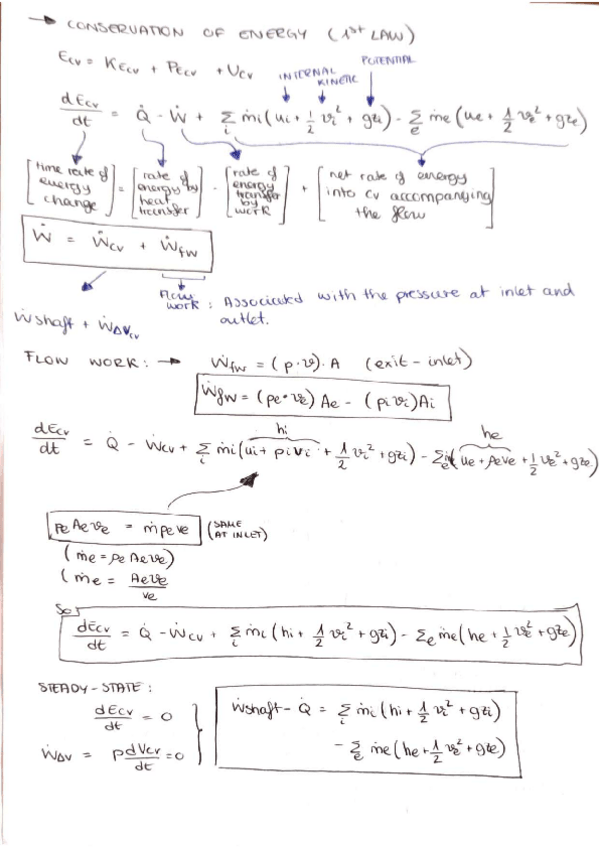 → CONSERVATION OF ENERGY (1st LAW)
Ecv = KEcv + PEcv + Ucv
INTERNAL KINETIC POTENTIAL
dEcv/dt = Q̇ - Ẇ + Σi ṁi(ui + 1/2 vi² + gzi) - Σe ṁe(ue + 1/2 ve² + gze)
[time rate of energy change] = [rate of energy by heat transfer] - [rate of energy transfer by work] + [net rate of energy into cv accompanying the flow]
Ẇ = Ẇcv + Ẇfw
Flow work: Associated with the pressure at inlet and outlet.
Ẇshaft + ẆΔVcv
FLOW WORK: → Ẇfw = (p·v)·A (exit - inlet)
Ẇfw = (pe·ve)Ae - (pi vi)Ai
hi he
dEcv/dt = Q̇ - Ẇcv + Σi ṁi(ui + pivi + 1/2 vi² + gzi) - Σe ṁ(ue + peve + 1/2 ve² + gze)
pe Ae ve = ṁpeve (SAME AT INLET)
(ṁe = ρe Aeve)
(ṁe = Aeve/ve
So,
dEcv/dt = Q̇ - Ẇcv + Σi ṁi(hi + 1/2 vi² + gzi) - Σe ṁe(he + 1/2 ve² + gze)
STEADY-STATE:
dEcv/dt = 0
ẆΔV = pdVcv/dt = 0
Ẇshaft - Q̇ = Σi ṁi(hi + 1/2 vi² + gzi)
- Σe ṁe(he + 1/2 ve² + gze)